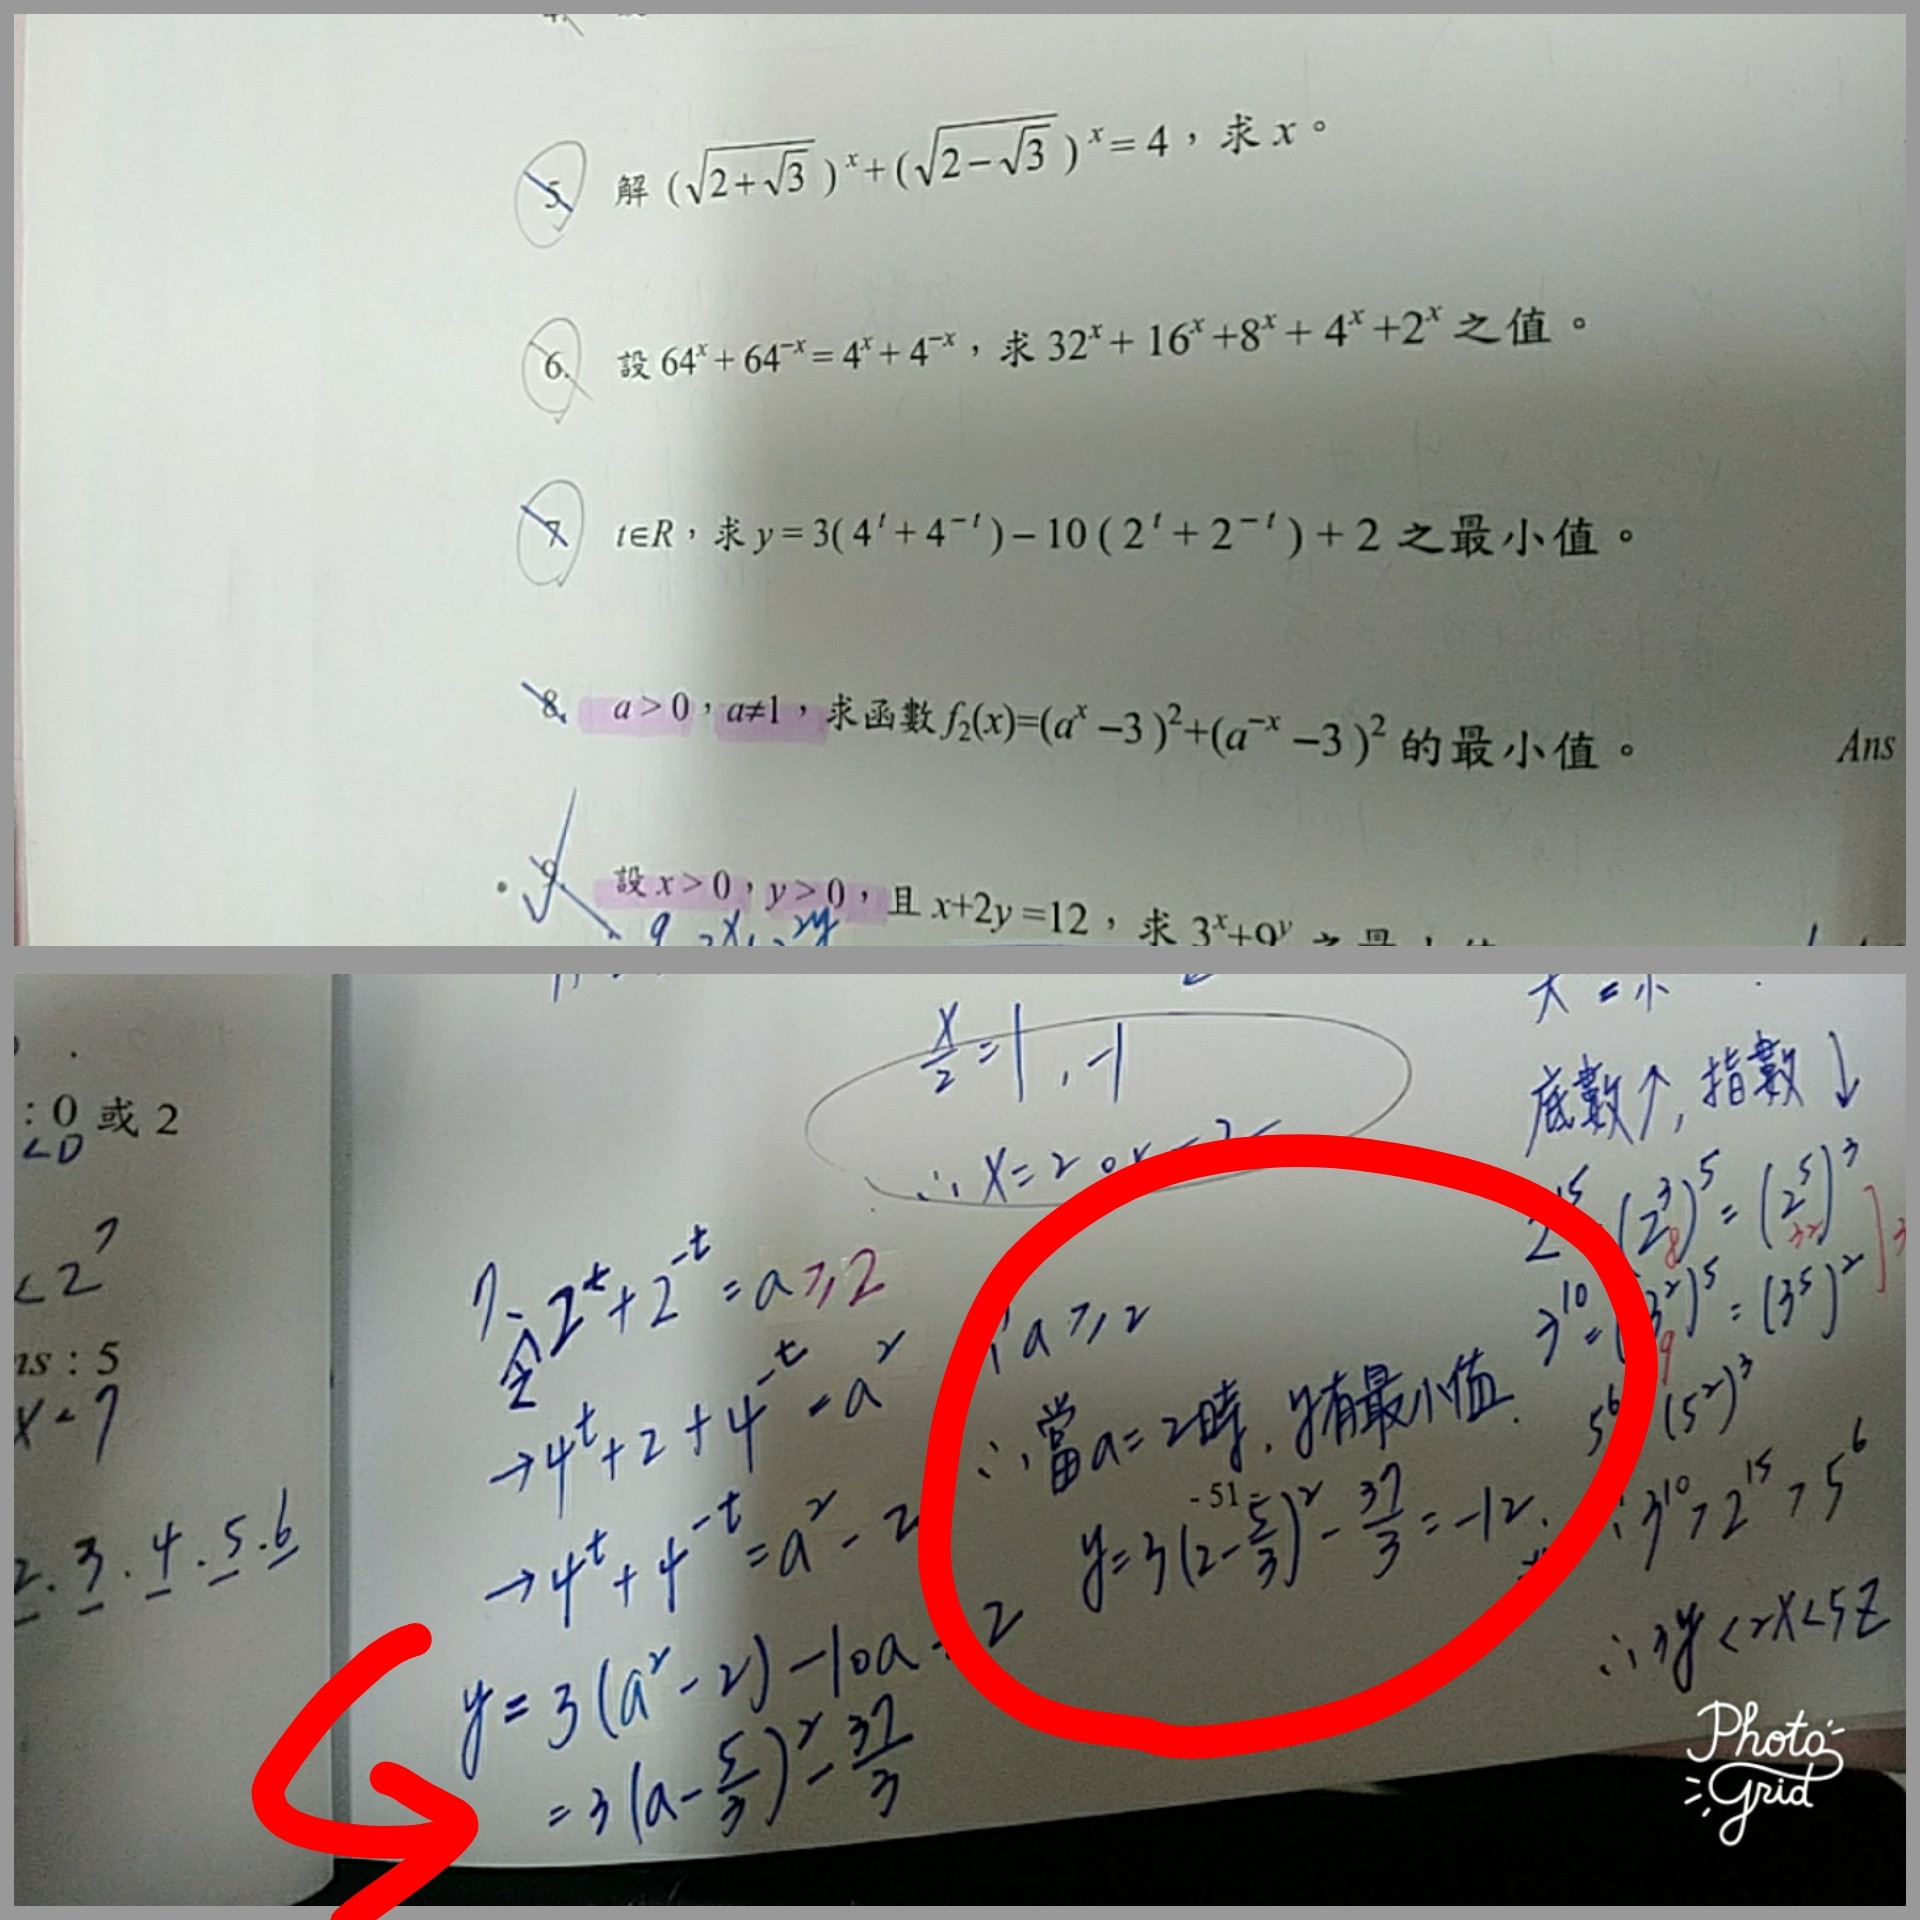 5. 解 (√(2+√3))^x+(√(2-√3))^x=4，求 x。
6. 設 64^x+64^-x=4^x+4^-x，求 32^x+16^x+8^x+4^x+2^x 之值。
7. t∈R，求 y=3(4^t+4^-t)-10(2^t+2^-t)+2 之最小值。
8. a>0，a≠1，求函數 f₂(x)=(a^x-3)²+(a^-x-3)² 的最小值。
Ans
9. 設 x>0，y>0，且 x+2y=12，求 3^x+9^y
: 0 或 2
<0
<2^7
ns : 5
x<7
2.3.4.5.6
x/2=1,-1
∴x=2 or -2
7. 令2^t+2^-t=a≥2
→4^t+2+4^-t=a²
→4^t+4^-t=a²-2
y=3(a²-2)-10a+2
=3(a-5/3)²-37/3
∵a≥2
∴當a=2時，y有最小值.
- 51 -
y=3(2-5/3)²-37/3=-12.
底數↑,指數↓
2^15=(2^3)^5=(2^5)^3
8
32
3^10=(3^2)^5=(3^5)^2
9
5^6 (5^2)^3
∴3^10>2^15>5^6
∴3y<2x<5z
Photo
Grid